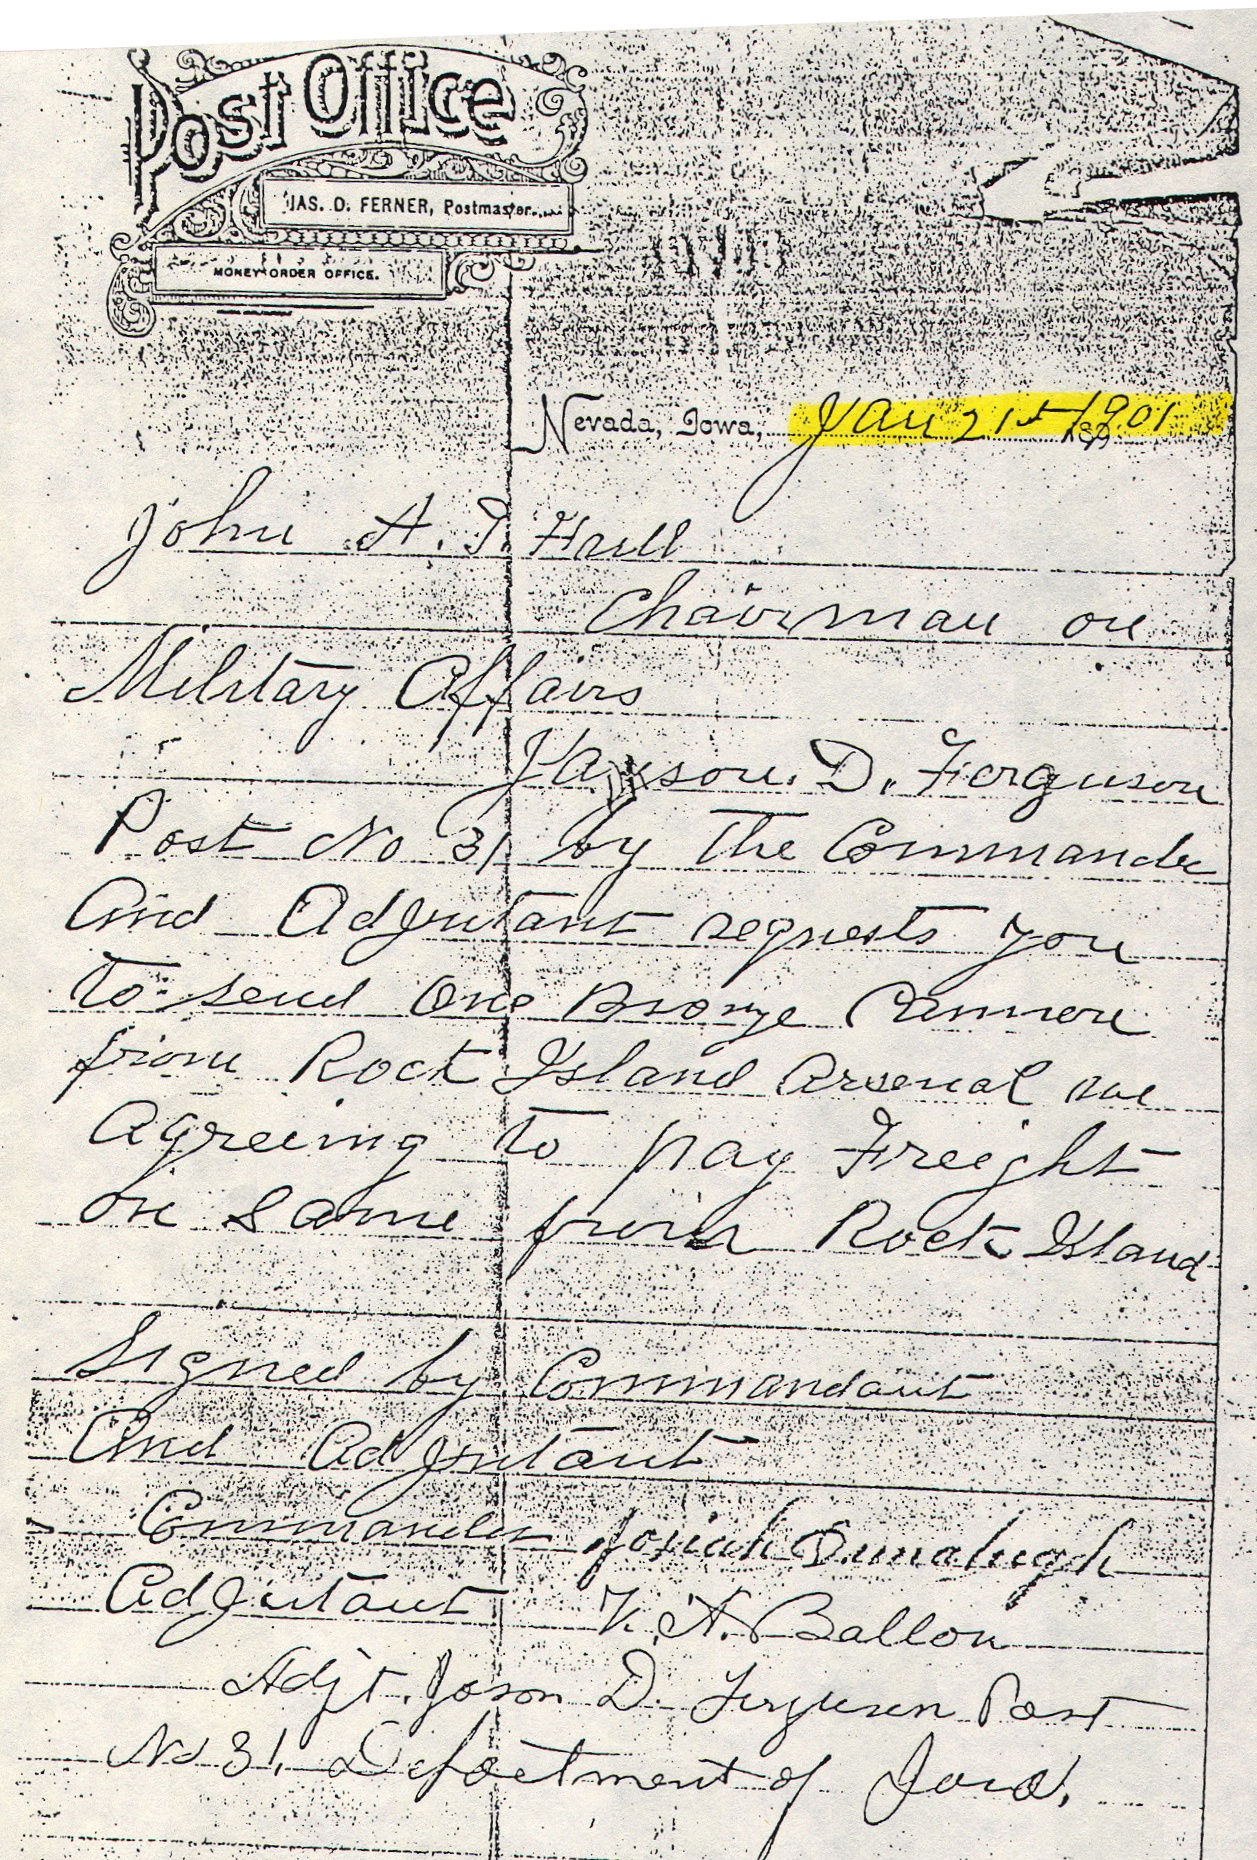 Post Office
JAS. D. FERNER, Postmaster
MONEY ORDER OFFICE.
Nevada, Iowa, Jan 21st 1901
189
John A. T. Hull
Chairman on
Military Affairs
Jason. D. Ferguson
Post No 31 by The Commander
And Adjutant requests you
to send One Bronze Cannon
from Rock Island Arsenal we
Agreeing to pay Freight
on same from Rock Island
Signed by Commandant
And Adjutant
Commander Josiah
Adjutant A. Ballou
Adjt. Jason D. Ferguson Post
No 31, Department of Iowa.